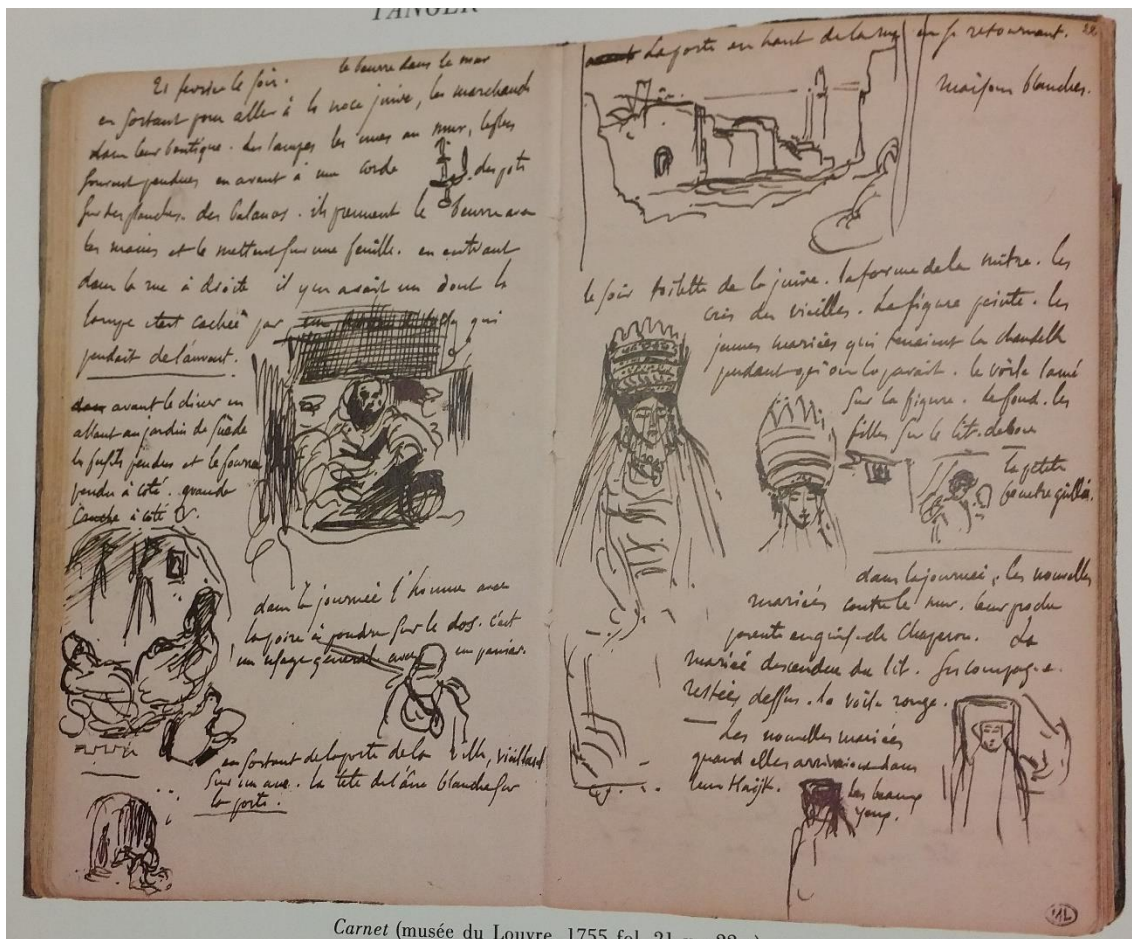 TANGER
21 fevrier le soir. le beurre dans le mur
en sortant pour aller à la noce juive, les marchands
dans leur boutique. des lampes les unes au mur, le plus
souvent pendues en avant à une corde des pots
sur des planches. des balances. ils prennent le beurre avec
les mains et le mettent sur une feuille. en entrant
dans la rue à droite il y en avait un dont la
lampe etait cachée par un qui
pendait de l'auvent.
avant le diner en
allant au jardin de Suède
les fusils pendus et le fourreau
pendu à coté. grande
Cruche à coté
dans la journée l'homme avec
la poire à poudre sur le dos. C'est
un usage general avec un panier.
en sortant de la porte de la ville, vieillard
sur un ane. la tete de l'âne blanche sur
la porte.
La porte en haut de la rue en se retournant.
22
maisons blanches.
le soir toilette de la juive. la forme de la mitre. les
cris des vieilles. La figure peinte. les
jeunes mariées qui tenaient la chandelle
pendant qu'on la parait. le voile lamé
sur la figure. Le fond. les
filles sur le lit. debout
la petite
dans la journée, les nouvelles
mariées contre le mur. leur proche
parente en guise de Chaperon. La
mariée descendue du lit. Ses compagnes
restées dessus. le voile rouge.
Les nouvelles mariées
quand elles arrivaient dans
leur Haijk.
les beaux
yeux.
ML
Carnet (musée du Louvre, 1755 fol. 21